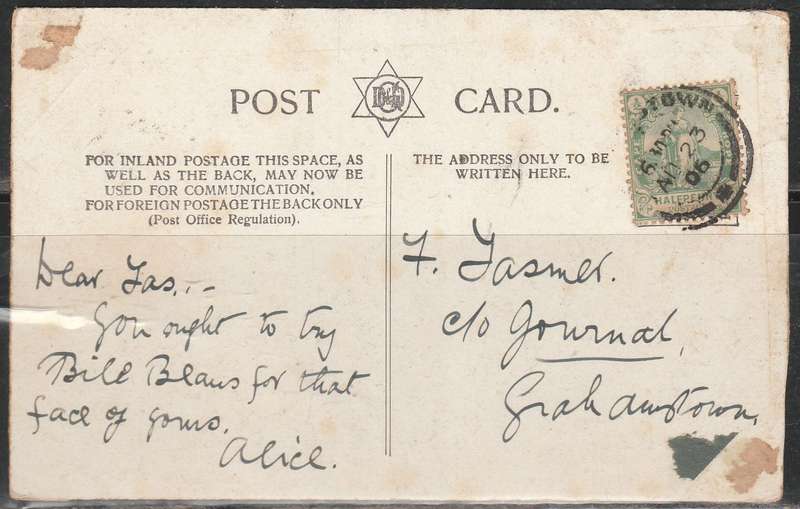 POST CARD.
FOR INLAND POSTAGE THIS SPACE, AS
WELL AS THE BACK, MAY NOW BE
USED FOR COMMUNICATION.
FOR FOREIGN POSTAGE THE BACK ONLY
(Post Office Regulation).
THE ADDRESS ONLY TO BE
WRITTEN HERE.
HALFPE
23
06
Dear Jas,.-
You ought to try
Bile Beans for that
face of yours.
Alice.
F. Jasmer.
c/o Journal,
Grahamstown.